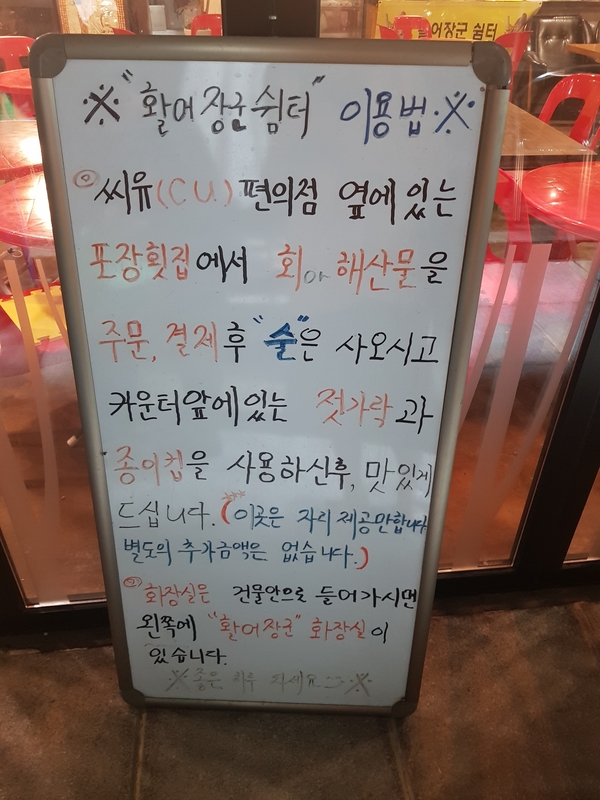 활어장군 쉼터
※"활어장군쉼터" 이용법※
① 씨유(CU)편의점 옆에 있는
포장횟집에서 회or해산물을
주문, 결제후 "술"은 사오시고
카운터앞에있는 젓가락과
종이컵을 사용하신후, 맛있게
드십니다. (이곳은 자리 제공만합니다
별도의 추가금액은 없습니다.)
② 화장실은 건물안으로 들어가시면
왼쪽에 "활어장군" 화장실이
있습니다.
※좋은 하루 되세요 :-)※